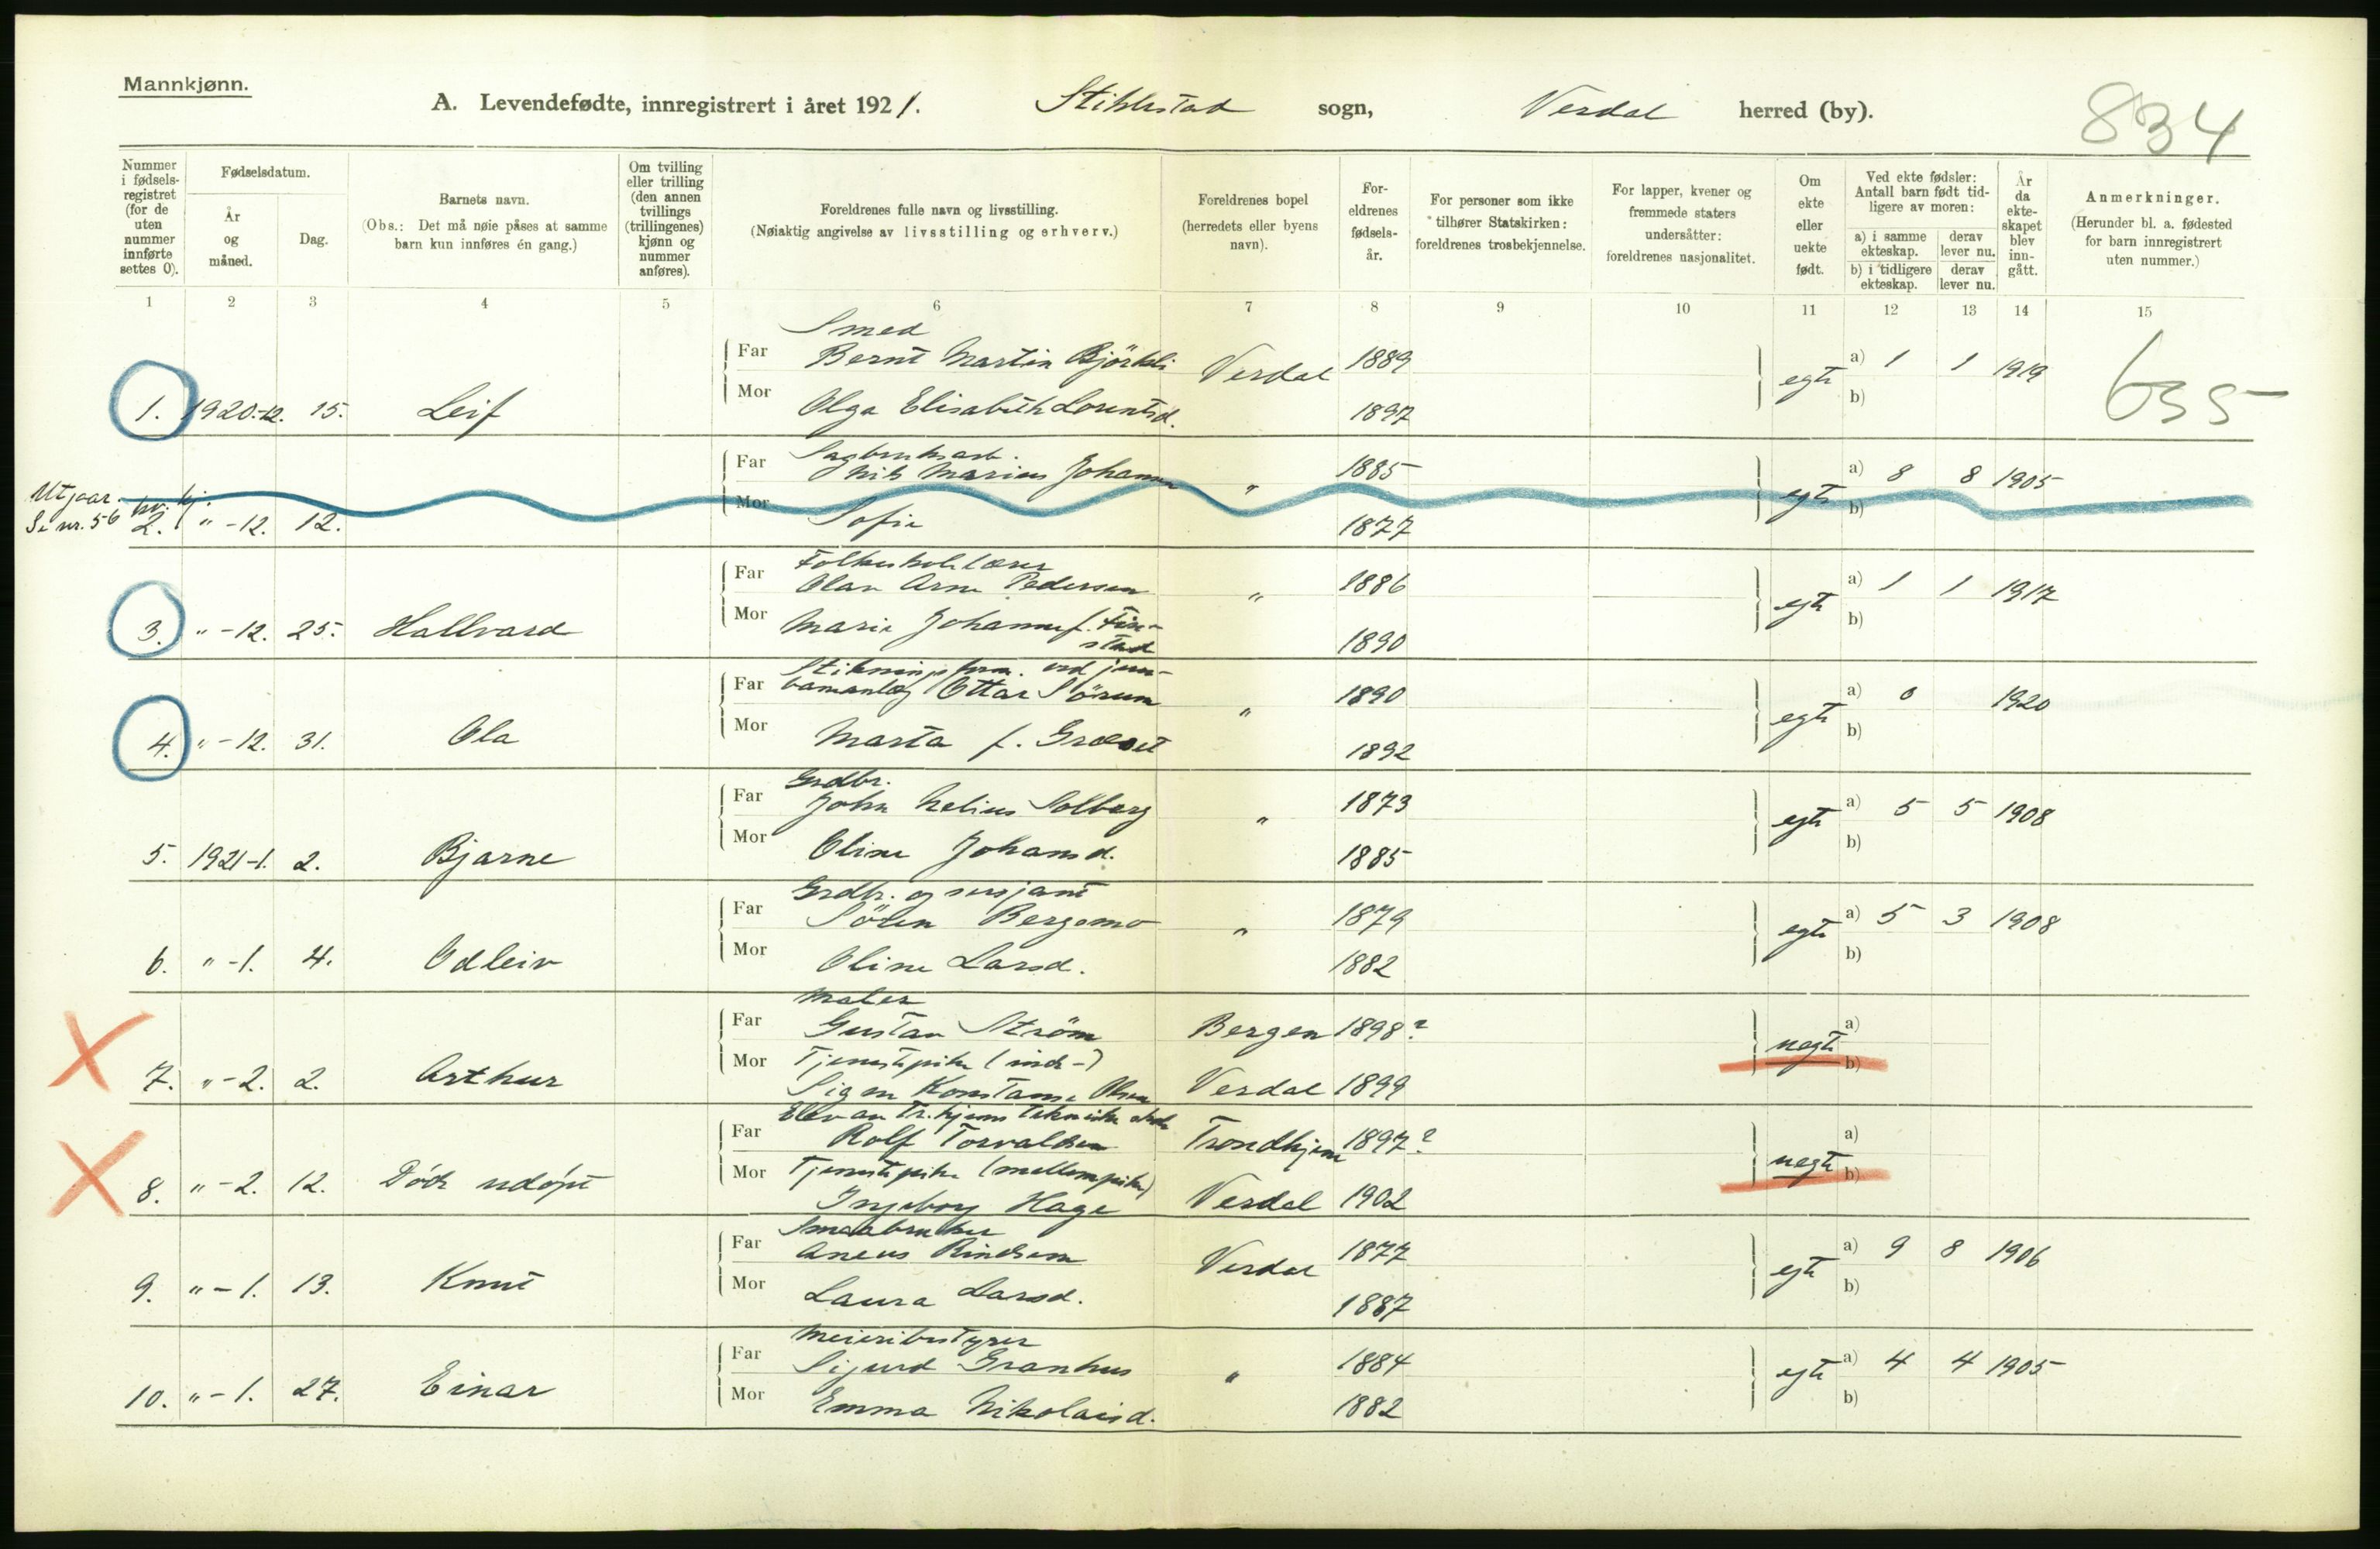 Mannkjønn.
A. Levendefødte, innregistrert i året 1921. Stiklestad sogn, Verdal herred (by).
834
Nummer i fødselsregistret (for de uten nummer innførte settes 0).
Fødselsdatum.
År og måned.
Dag.
Barnets navn.
(Obs.: Det må nøie påses at samme barn kun innføres én gang.)
Om tvilling eller trilling (den annen tvillings (trillingenes) kjønn og nummer anføres).
Foreldrenes fulle navn og livsstilling.
(Nøiaktig angivelse av livsstilling og erhverv.)
Foreldrenes bopel (herredets eller byens navn).
Foreldrenes fødselsår.
For personer som ikke tilhører Statskirken: foreldrenes trosbekjennelse.
For lapper, kvener og fremmede staters undersåtter: foreldrenes nasjonalitet.
Om ekte eller uekte født.
Ved ekte fødsler: Antall barn født tidligere av moren:
a) i samme ekteskap. derav lever nu.
b) i tidligere ekteskap. derav lever nu.
År da ekteskapet blev inngått.
Anmerkninger.
(Herunder bl. a. fødested for barn innregistrert uten nummer.)
1 2 3 4 5 6 7 8 9 10 11 12 13 14 15
Smed
Far Bernt Martin Björkli Verdal 1889 egte a) 1 1 1919
655
1. 1920.-12. 15. Leif Mor Olga Elisabeth Lorentsd. 1897 b)
Sagbruksarb.
Far Nils Marius Johansen " 1885 egte a) 8 8 1905
Utgaar. kv. kj.
Se nr. 56 2. " -12. 12. Mor Sofie 1877 b)
Folkeskolelærer
Far Olav Arne Pedersen " 1886 egte a) 1 1 1917
3. " -12. 25. Hallvard Mor Marie Johanne f. Finstad 1890 b)
Stikningsform. ved jernbaneanlæg
Far Ottar Sörum " 1890 egte a) 0 1920
4. " -12. 31. Ola Mor Marta f. Græset 1892 b)
Grdbr.
Far John Helius Solberg " 1873 egte a) 5 5 1908
5. 1921-1. 2. Bjarne Mor Oline Johansd. 1885 b)
Grdbr. og sersjant
Far Sören Bergsmo " 1879 egte a) 5 3 1908
6. " -1. 4. Odleiv Mor Oline Larsd. 1882 b)
Maler
Far Gustav Ström Bergen 1898? uegte a)
7. " -2. 2. Arthur Mor Tjenestepike (inde-)
Konstanse Olsen Verdal 1899 b)
Elev av Tr.hjems tekniske skole
Far Rolf Torvaldsen Trondhjem 1897? uegte a)
8. " -2. 12. Död udöpt Mor Tjenestepike (mellempike)
Ingeborg Hage Verdal 1902 b)
Smaabruker
Far Aneus Rindsem Verdal 1877 egte a) 9 8 1906
9. " -1. 13. Knut Mor Laura Larsd. 1887 b)
Meieribestyrer
Far Sigurd Granhus " 1884 egte a) 4 4 1905
10. " -1. 27. Einar Mor Emma Nikolaisd. 1882 b)